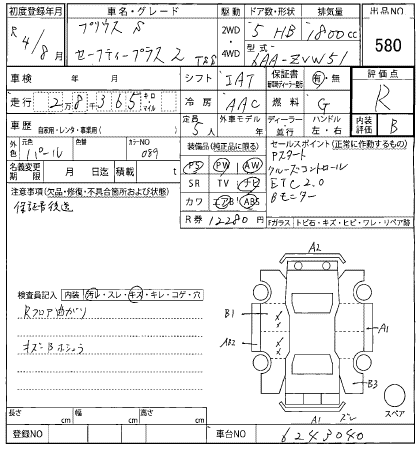 初度登録年月 車名・グレード 駆動 ドア数・形状 排気量 出品NO
R 4/8月 プリウス S 2WD・4WD 5 HB 1800cc 580
セーフティープラス2 TSS 型式 6AA-ZVW51
車検 年 月 シフト IAT 保証書 有・無 評価点
走行 2万8千365 キロ マイル 冷房 AAC 燃料 G R
車歴 自家用・レンタ・事業用( ) 定員 5人 外車モデル 年 ディーラー 並行 ハンドル 左・右 内装評価 B
外色 元色 パール 色替 カラーNO 089 装備品(純正品に限る) セールスポイント(正常に作動するもの)
名義変更期限 月 日迄 積載 t PS PW AW Pスタート
注意事項(欠品・修復・不具合箇所および状態) SR TV ナビ クルーズコントロール
保証書後送 カワ エアB ABS ETC2.0
R券 12280円 Bモニター
Fガラス トビ石・キズ・ヒビ・ワレ・リペア跡
A2
検査員記入 内装 汚レ・スレ・キズ・キレ・コゲ・穴
Rフロア曲がり B1 A1
キズB ホシュウ AB2
B3
スペア
長さ cm 幅 cm 高さ cm A1 ズレ
登録NO 車台NO 6243040